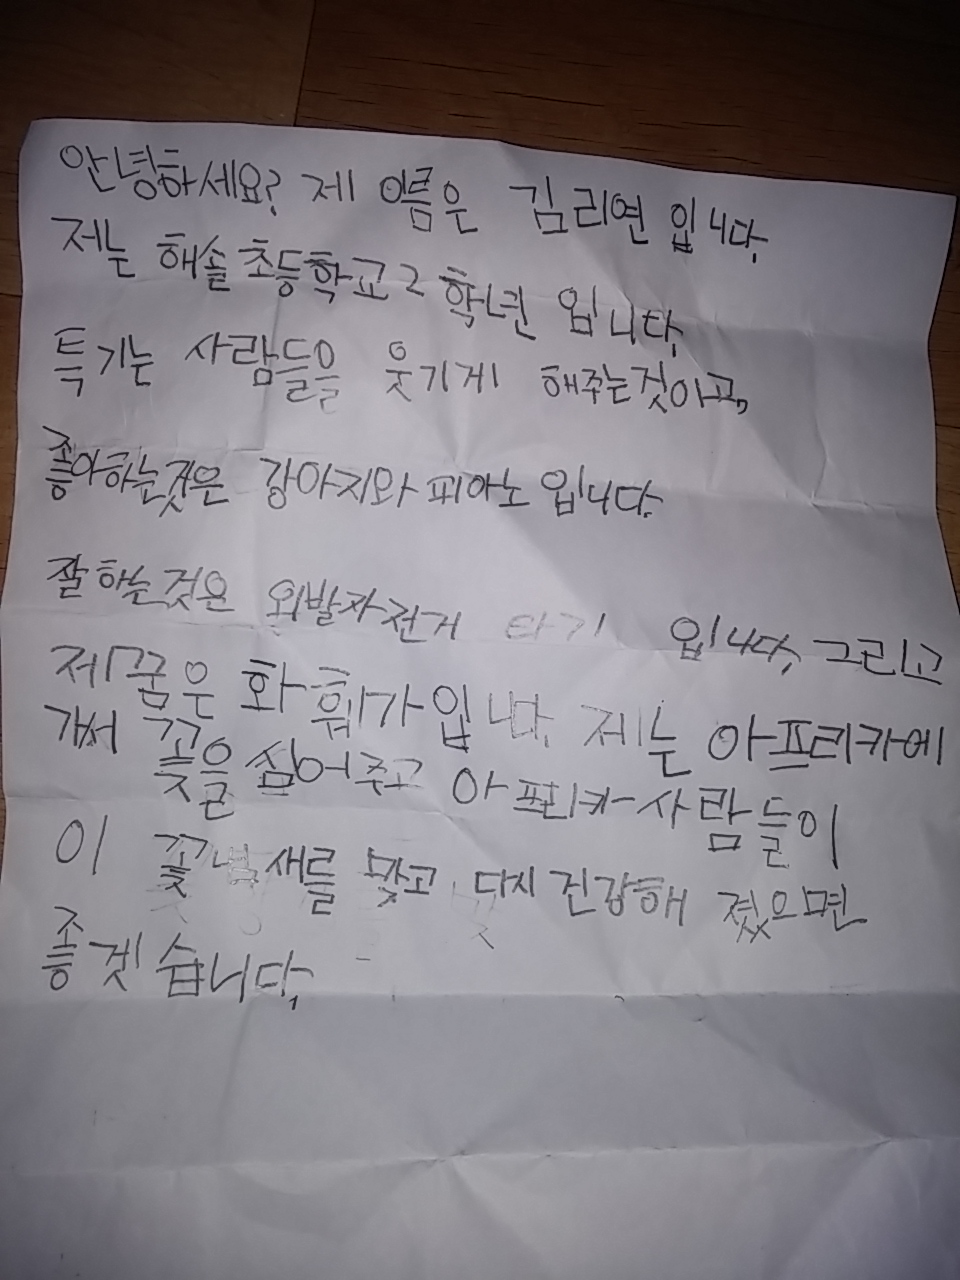 안녕하세요? 제 이름은 김리연 입니다.
저는 해솔초등학교 2학년 입니다.
특기는 사람들을 웃기게 해주는것이고,
좋아하는것은 강아지와 피아노 입니다.
잘하는것은 외발자전거 타기 입니다. 그리고
제꿈은 화훼가입니다. 제는 아프리카에
가서 꽃을 심어주고 아프리카사람들이
이 꽃냄새를 맞고 다시 건강해 졌으면
좋겟습니다.